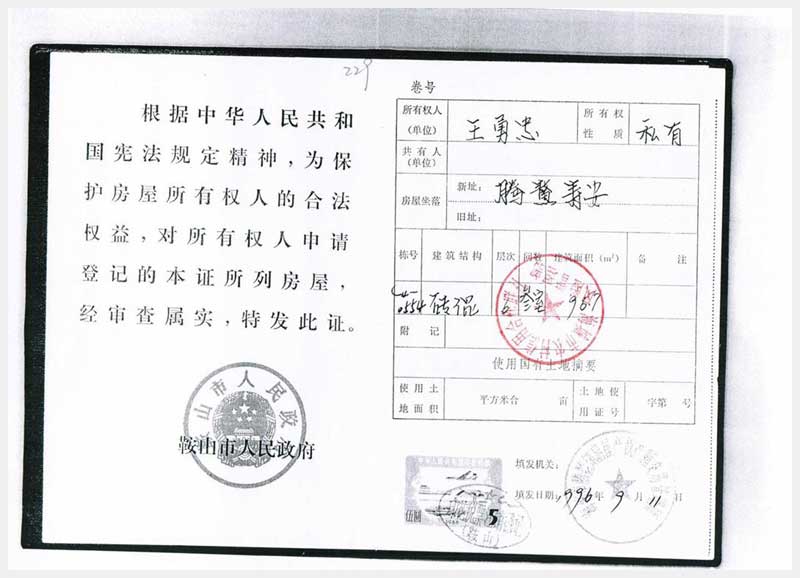 229
根据中华人民共和
国宪法规定精神，为保
护房屋所有权人的合法
权益，对所有权人申请
登记的本证所列房屋，
经审查属实，特发此证。
山市人民政
鞍山市人民政府
卷号
所有权人
(单位)
王勇忠
所有权
性 质
私有
共有人
(单位)
房屋坐落
新址：
腾鳌寿安
旧址：
栋号 建筑结构 层次 间数 建筑面积（m²） 备 注
砖混 叁室
附 记
使用国有土地摘要
使用土
地面积
平方米合 亩
土地使
用证号
字第 号
填发机关：
填发日期：1996年9月11日
伍圆
5
(鞍山)